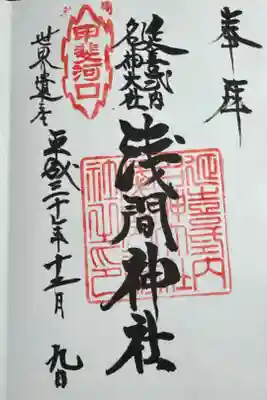 奉拝
延喜式内
名神大社
浅間神社
甲斐河口
世界遺産
平成
年十二月
九日
延喜式内